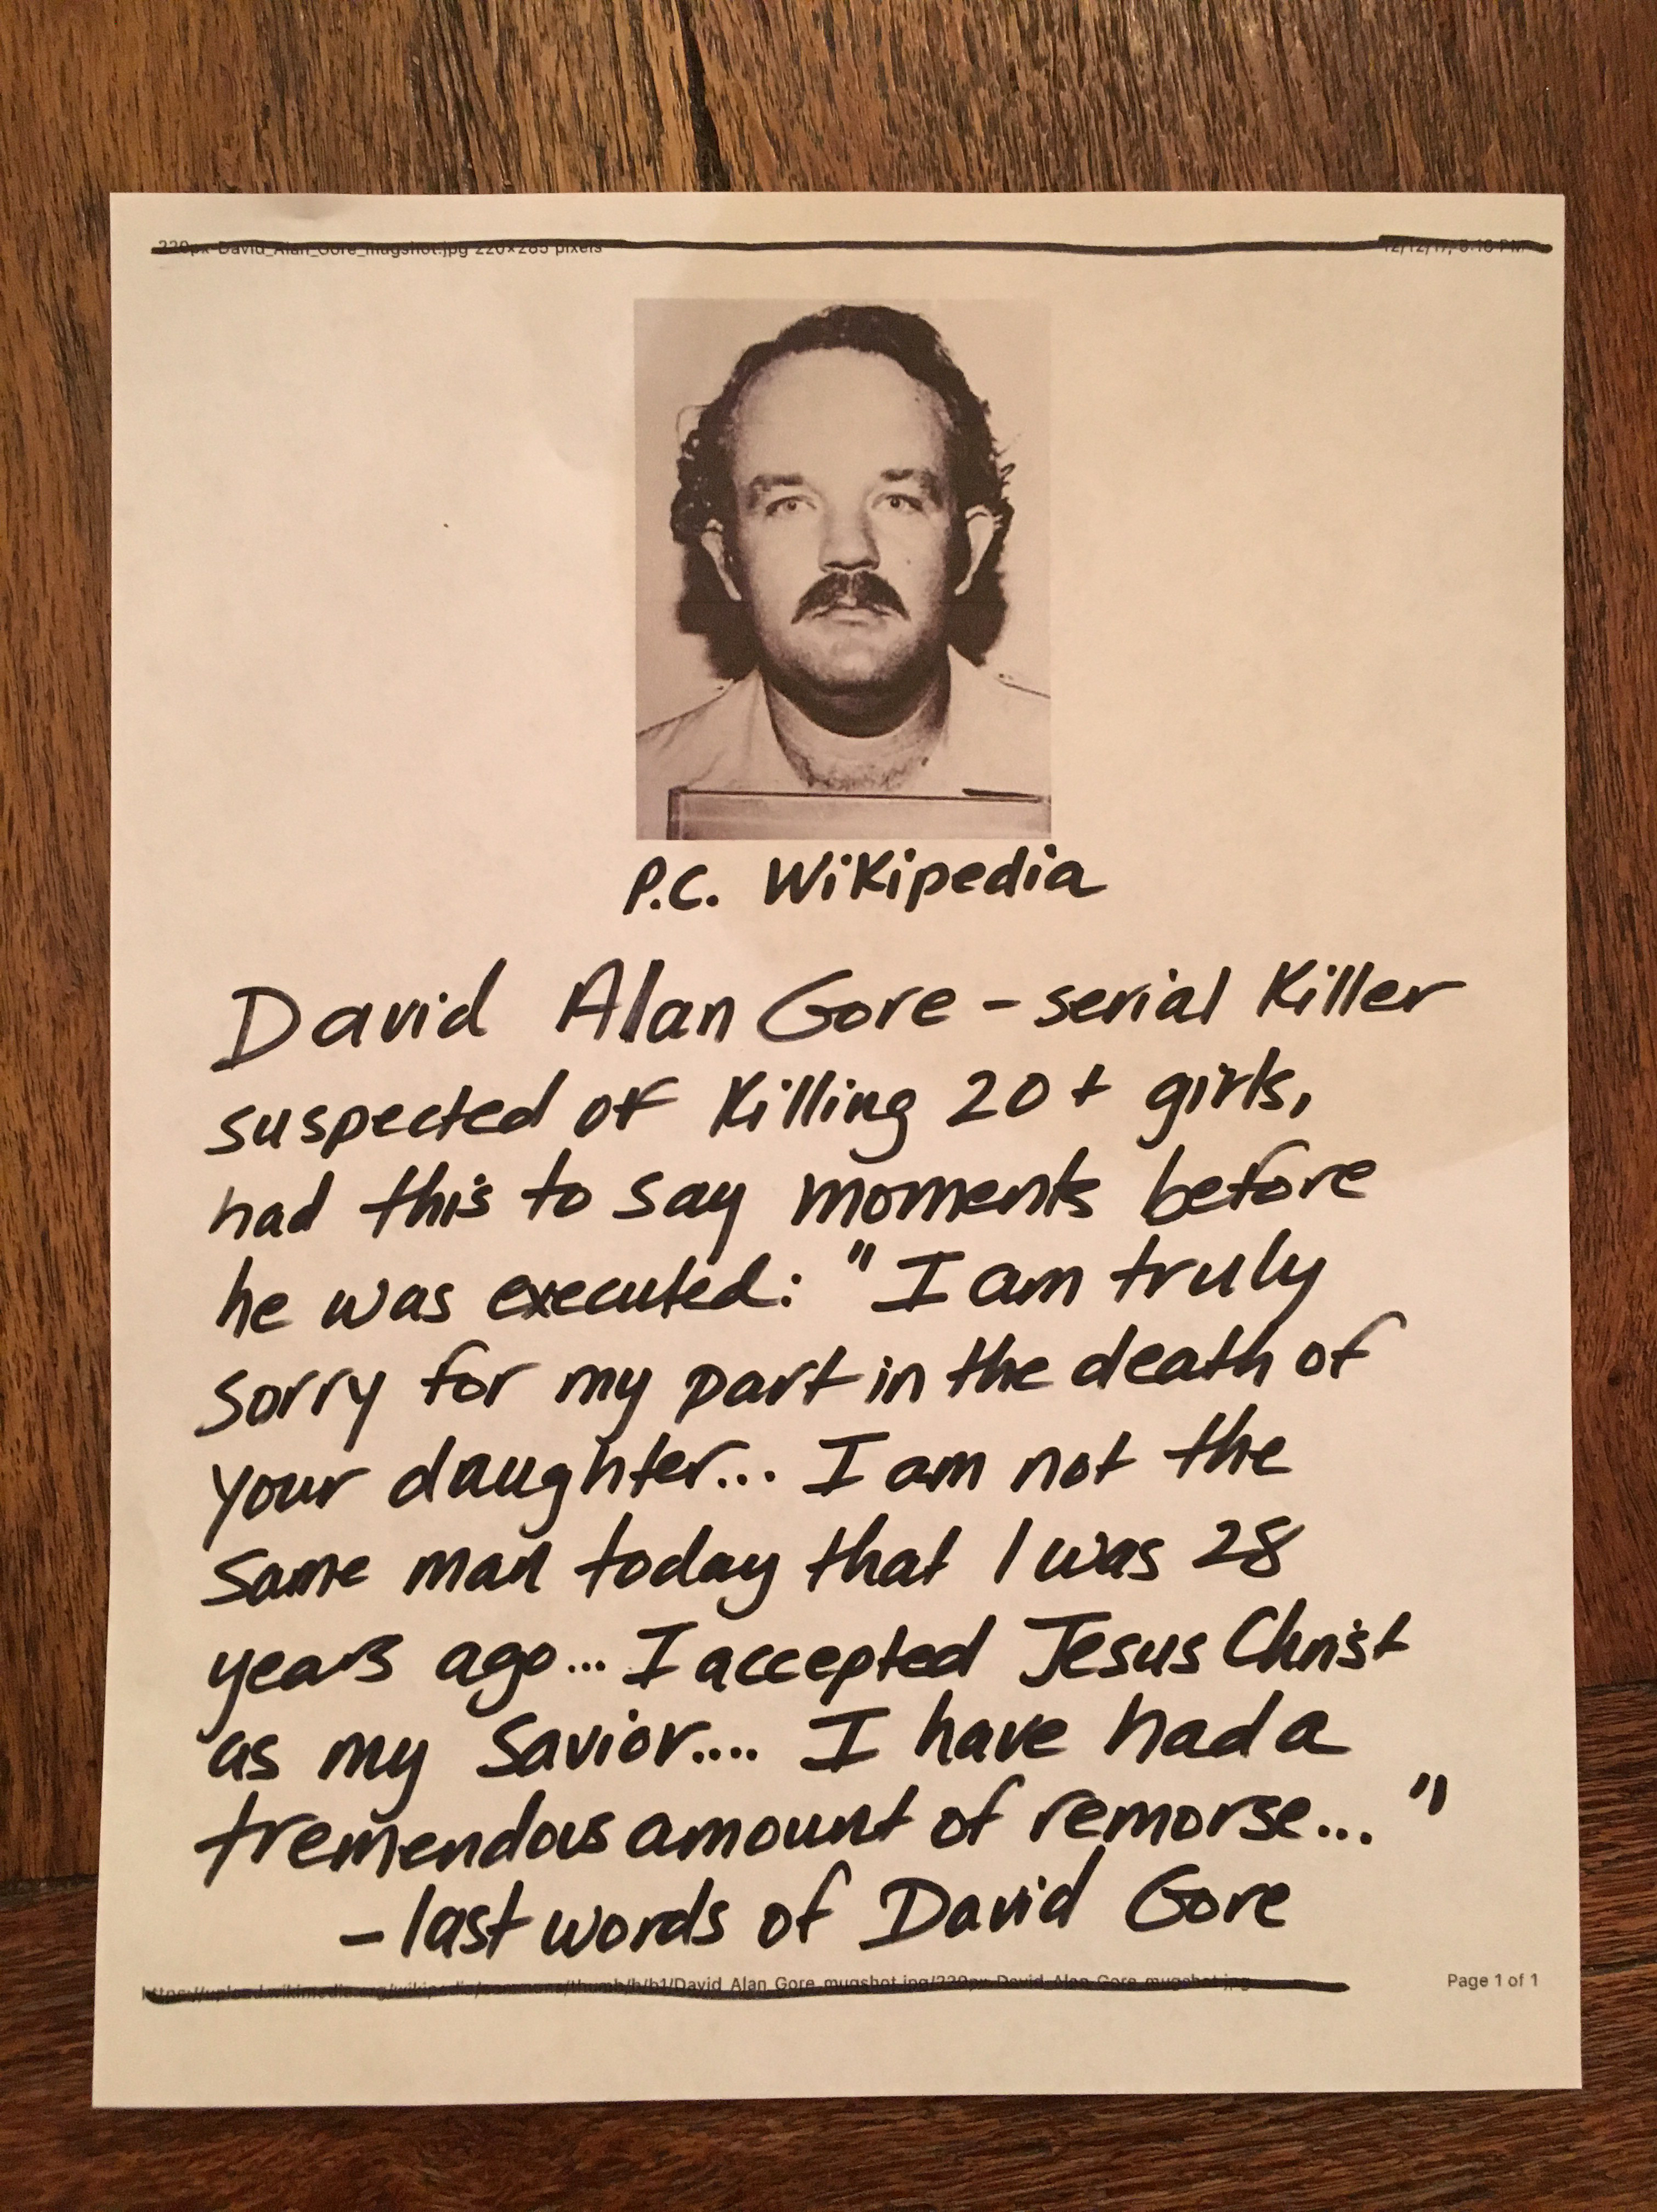 220px-David_Alan_Gore_mugshot.jpg 220×285 pixels
P.C. Wikipedia
David Alan Gore - serial Killer
suspected of Killing 20+ girls,
had this to say moments before
he was executed: "I am truly
sorry for my part in the death of
your daughter... I am not the
same man today that I was 28
years ago... I accepted Jesus Christ
as my Savior.... I have had a
tremendous amount of remorse... "
- last words of David Gore
https://upload.wikimedia.org/wikipedia/commons/thumb/b/b1/David_Alan_Gore_mugshot.jpg/220px-David_Alan_Gore_mugshot.jpg
Page 1 of 1